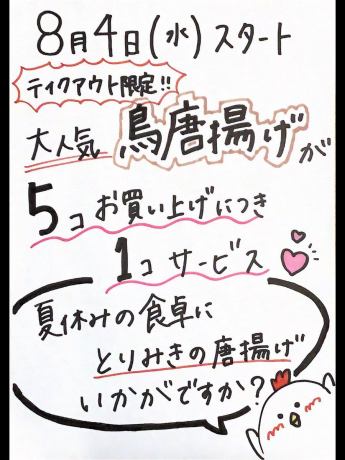 8月4日(水)スタート
テイクアウト限定!!
大人気 鳥唐揚げが
5コお買い上げにつき
1コサービス
夏休みの食卓に
とりみきの唐揚げ
いかがですか?